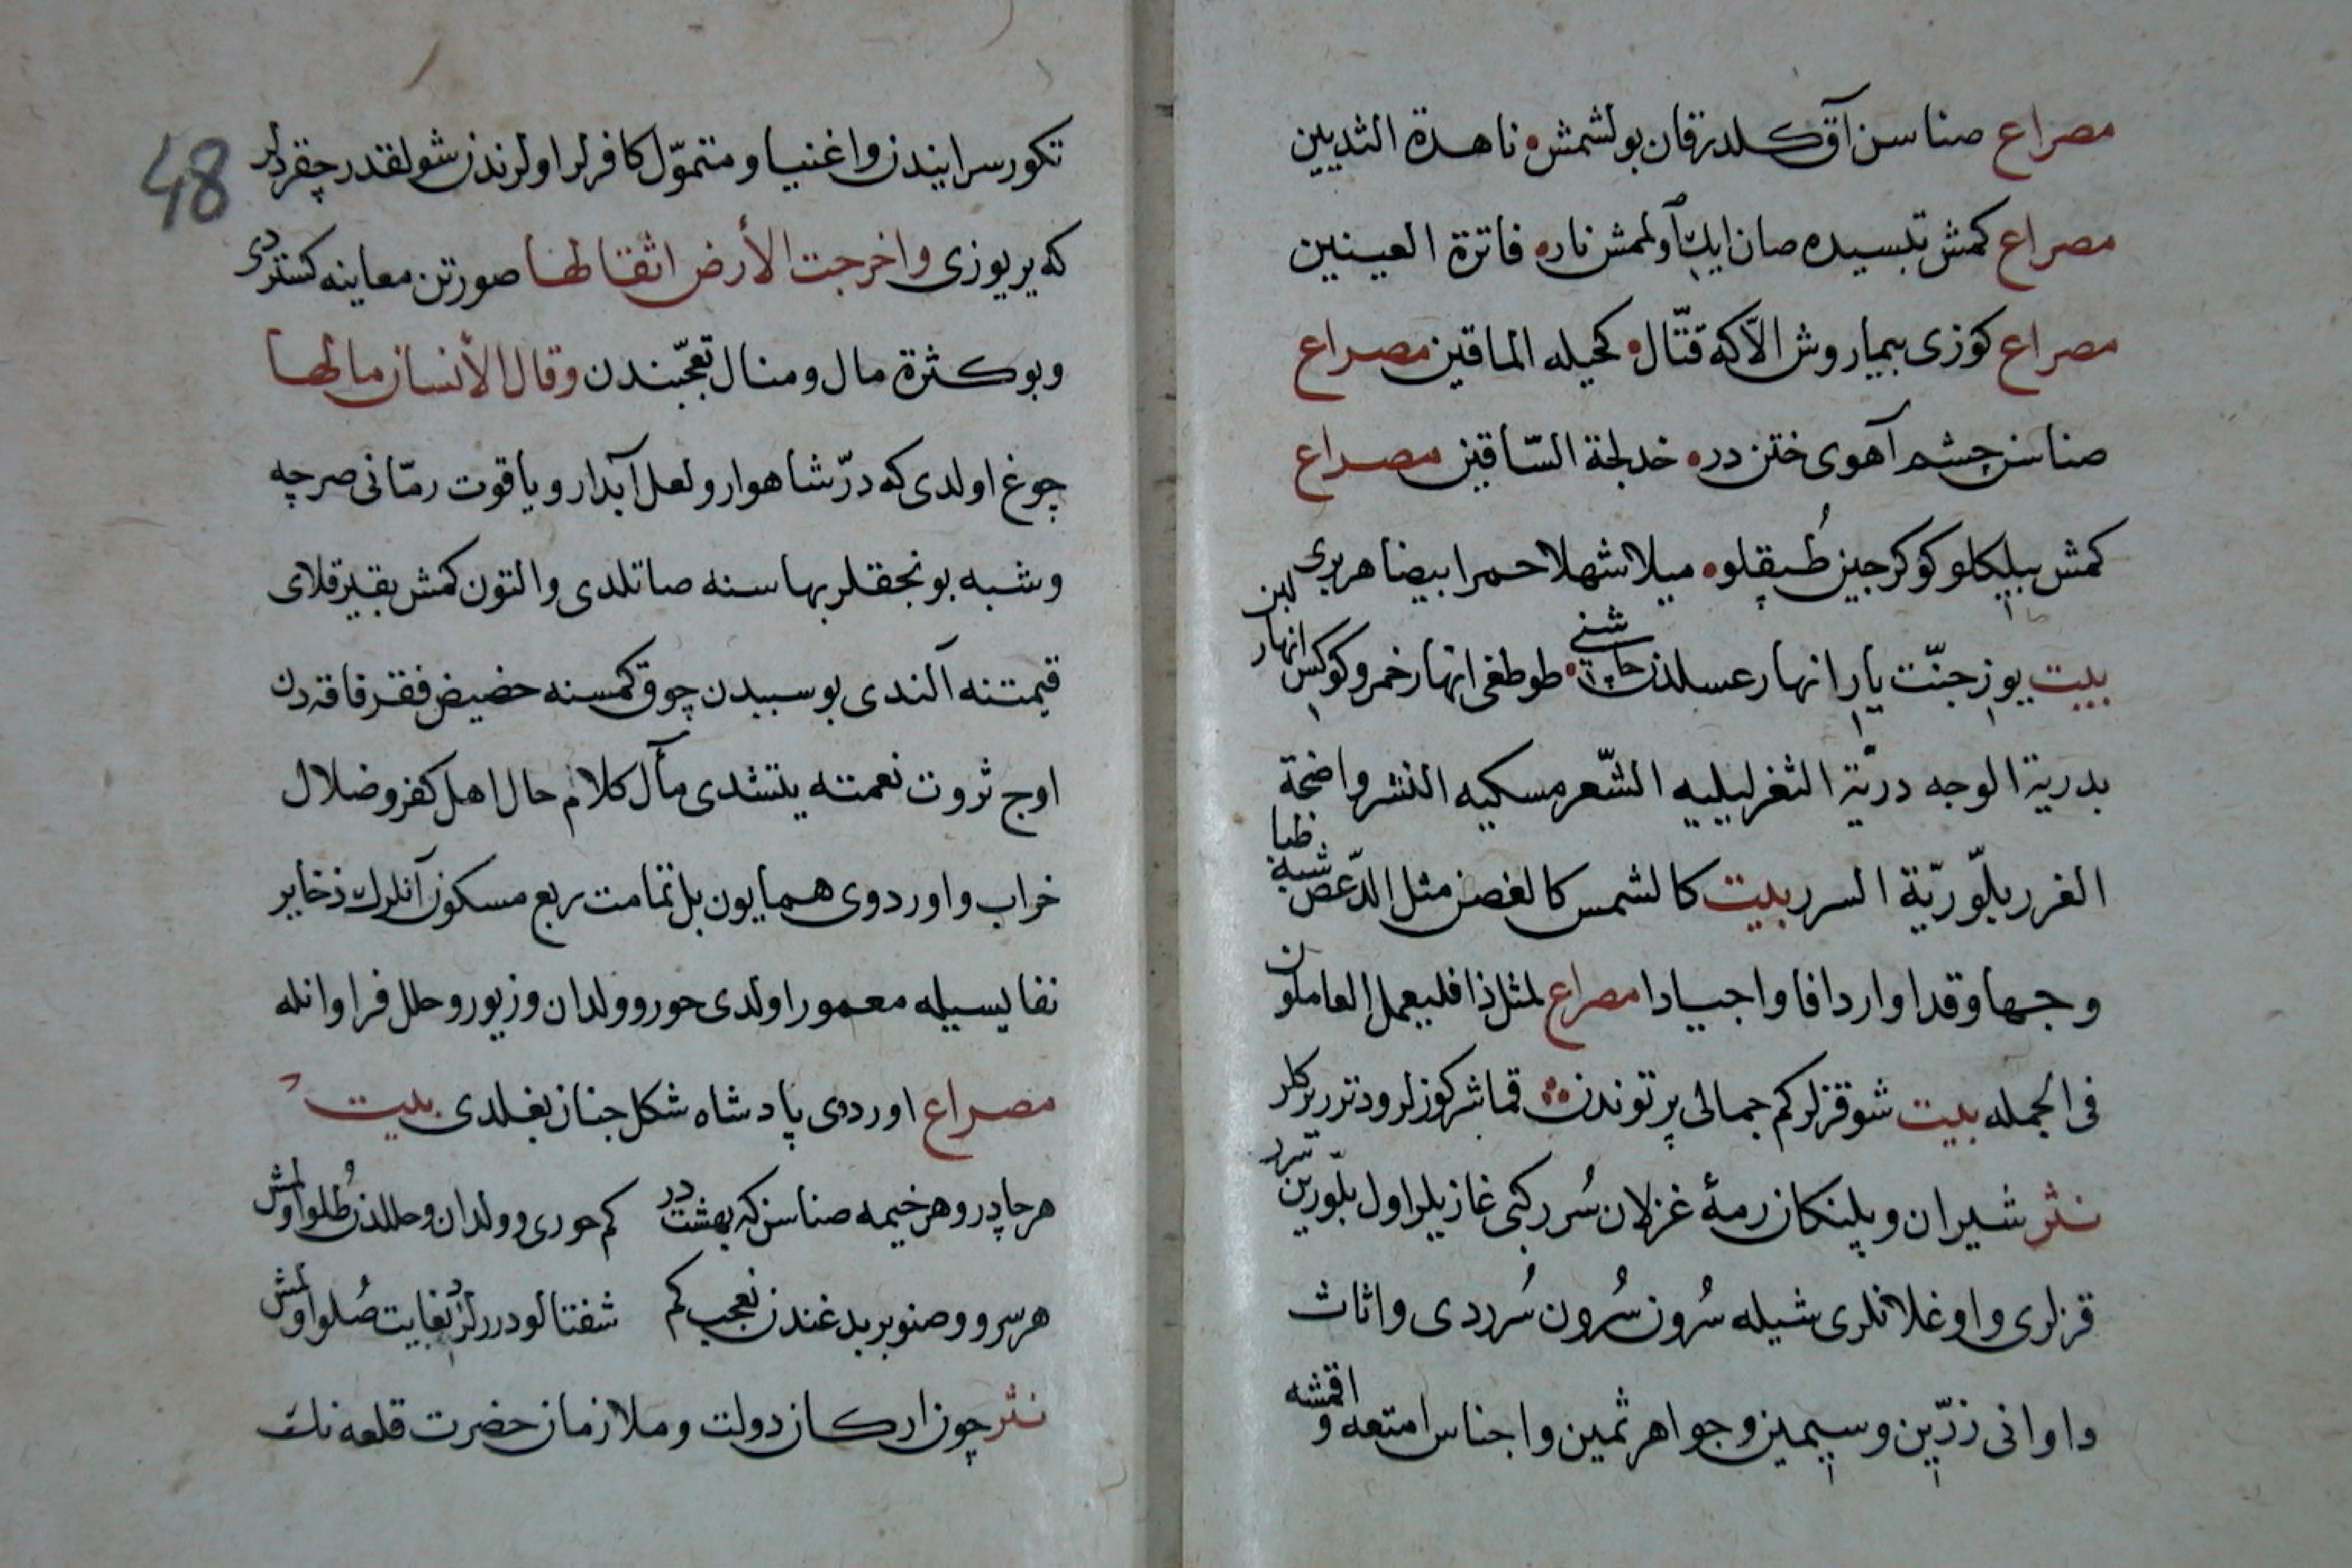 مصراع صناسن آق كلدر قان بولشمش ناهدة الثديين
مصراع كمش تبسيده صان ايك آولمش ناره فاترة العينين
مصراع كوزى بيمار وش الاكه قتّال كحيله الماقين مصراع
صناسن چشم آهوى ختن دره خدلجة السّاقين مصراع
كمش بيلكلو كوكرجين طُپقلو ميلا شهلا حمرا بيضا هر برى
بيت يوز جنّت يار انهار عسلدن چاشنى طوطغى انهار خمر و كوكس انهار لبن
بدرية الوجه دريّة الثغر ليليه الشّعر مسكيه النشر واضحة
الغرر بلّوريّة السرر بيت كالشمس كالغصن مثل الدّعص شبه ظبا
وجها وقدا واردافا واجيادا مصراع لمثل ذا فليعمل العاملون
فى الجمله بيت شو قزلر كم جمالى پرتوندن قماشر كوزلر و دتررير كلر
نثر شيران و پلنكان رمهٔ غزلان سُرر كبى غازيلر اول بلّورين سرر
قزلرى و اوغلانلرى شيله سُرون سُرون سُرردى و اثاث
و اوانى زرّين و سيمين و جواهر ثمين و اجناس امتعه و اقمشه
48
تكور سرايندن و اغنيا و متموّل كافرلر اولرندن شولقدر چقردلر
كه ير يوزى واخرجت الأرض اثقالها صورتن معاينه كستردى
و بو كثرة مال و منال تعجّبندن وقال الأنسان مالها
چوغ اولدى كه درّ شاهوار و لعل آبدار و ياقوت رمّانى صرچه
و شبه بونجقلر بهاسنه صاتلدى و التون كمش بقير قلاى
قيمتنه آلندى بو سببدن چوق كمسنه حضيض فقر فاقه دن
اوج ثروت نعمته يتشدى مآل كلام حال اهل كفر و ضلال
خراب و اوردوى همايون بل تمامت ربع مسكون آنلرك ذخاير
نفايسيله معمور اولدى حور و ولدان و زيور و حلل فراوانله
مصراع اوردوى پادشاه شكل جنان بغلدى بيت
هر چادر و هر خيمه صناسن كه بهشتدر كم حورى و ولدان و حللدن طُلو اولمش
هر سرو و صنوبر بدغندن تعجب كم شفتالودررلر بغايت صُلو اولمش
نثر چون اركان دولت و ملازمان حضرت قلعه نك